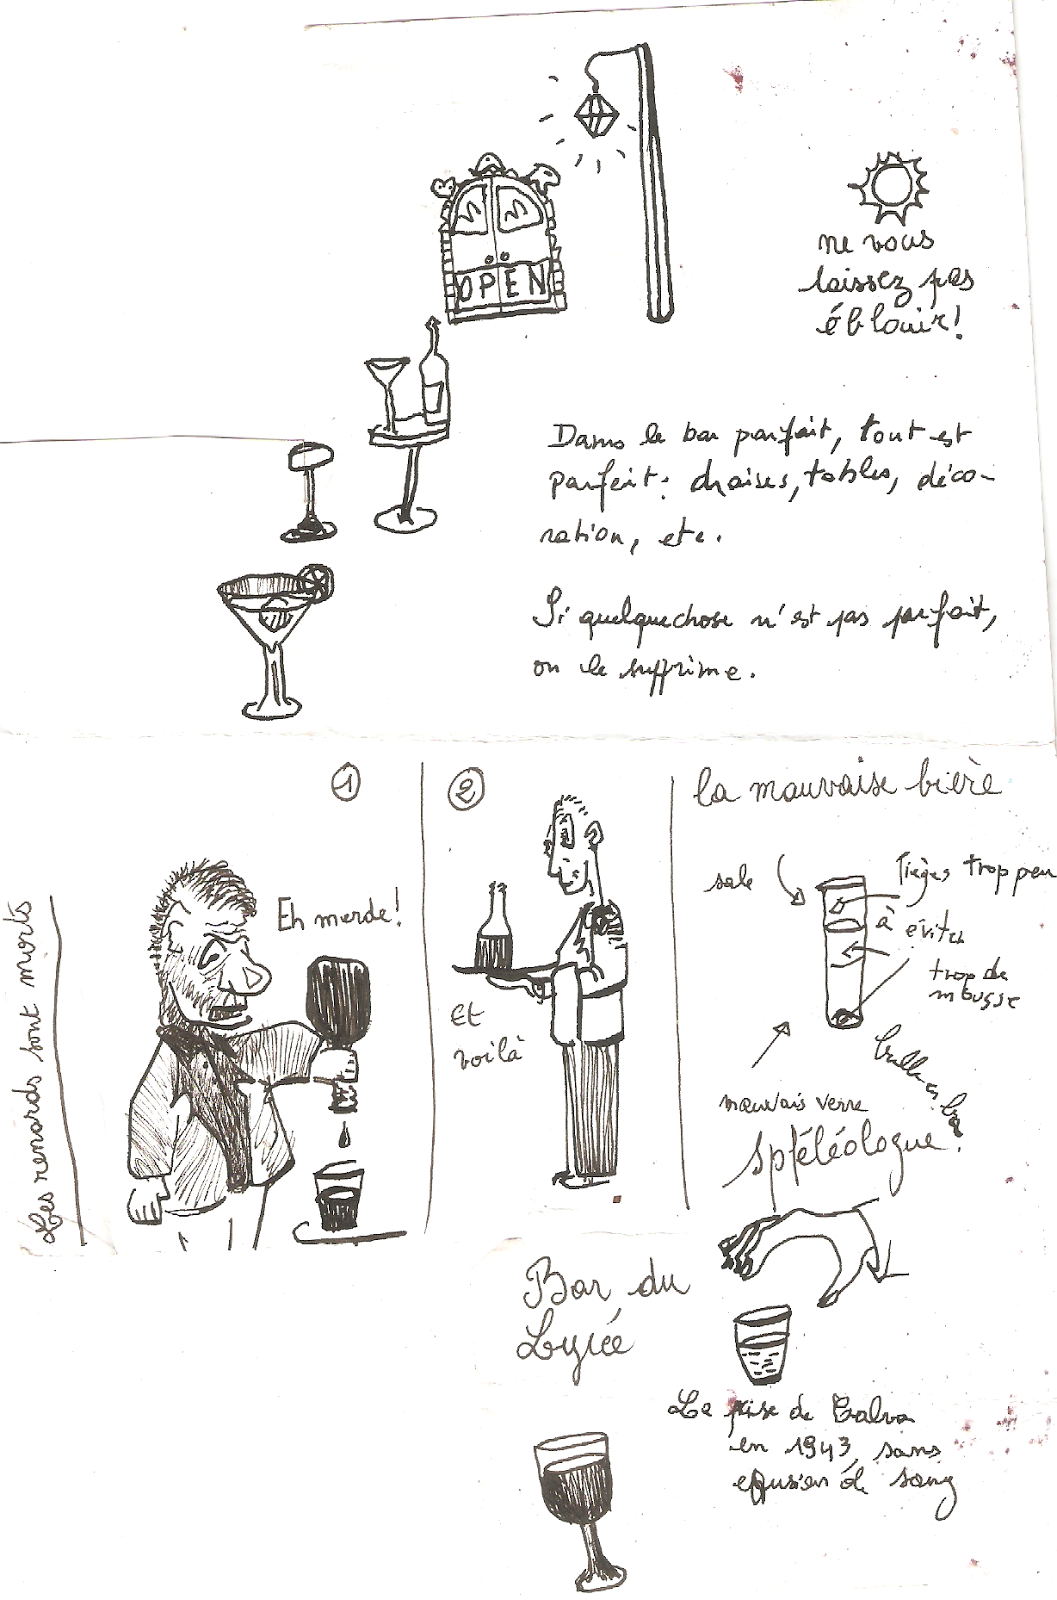 OPEN
ne vous
laissez pas
éblouir!
Dans le bar parfait, tout est
parfait: chaises, tables, déco-
ration, etc.
Si quelquechose n'est pas parfait,
on le supprime.
Les renards sont morts
1
Eh merde!
2
Et
voilà
la mauvaise bière
sale
Pièges trop peu
à éviter
trop de
mousse
mauvais verre
spféléologue!
Bar du
Lycée
La prise de Calva
en 1943, sans
effusion de sang